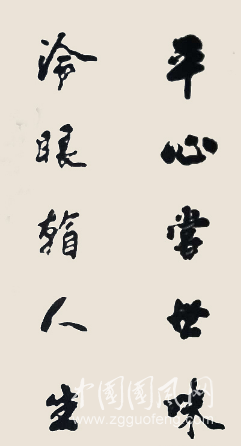 平心嘗世味
冷眼看人生
中国国风网
www.zgguofeng.com